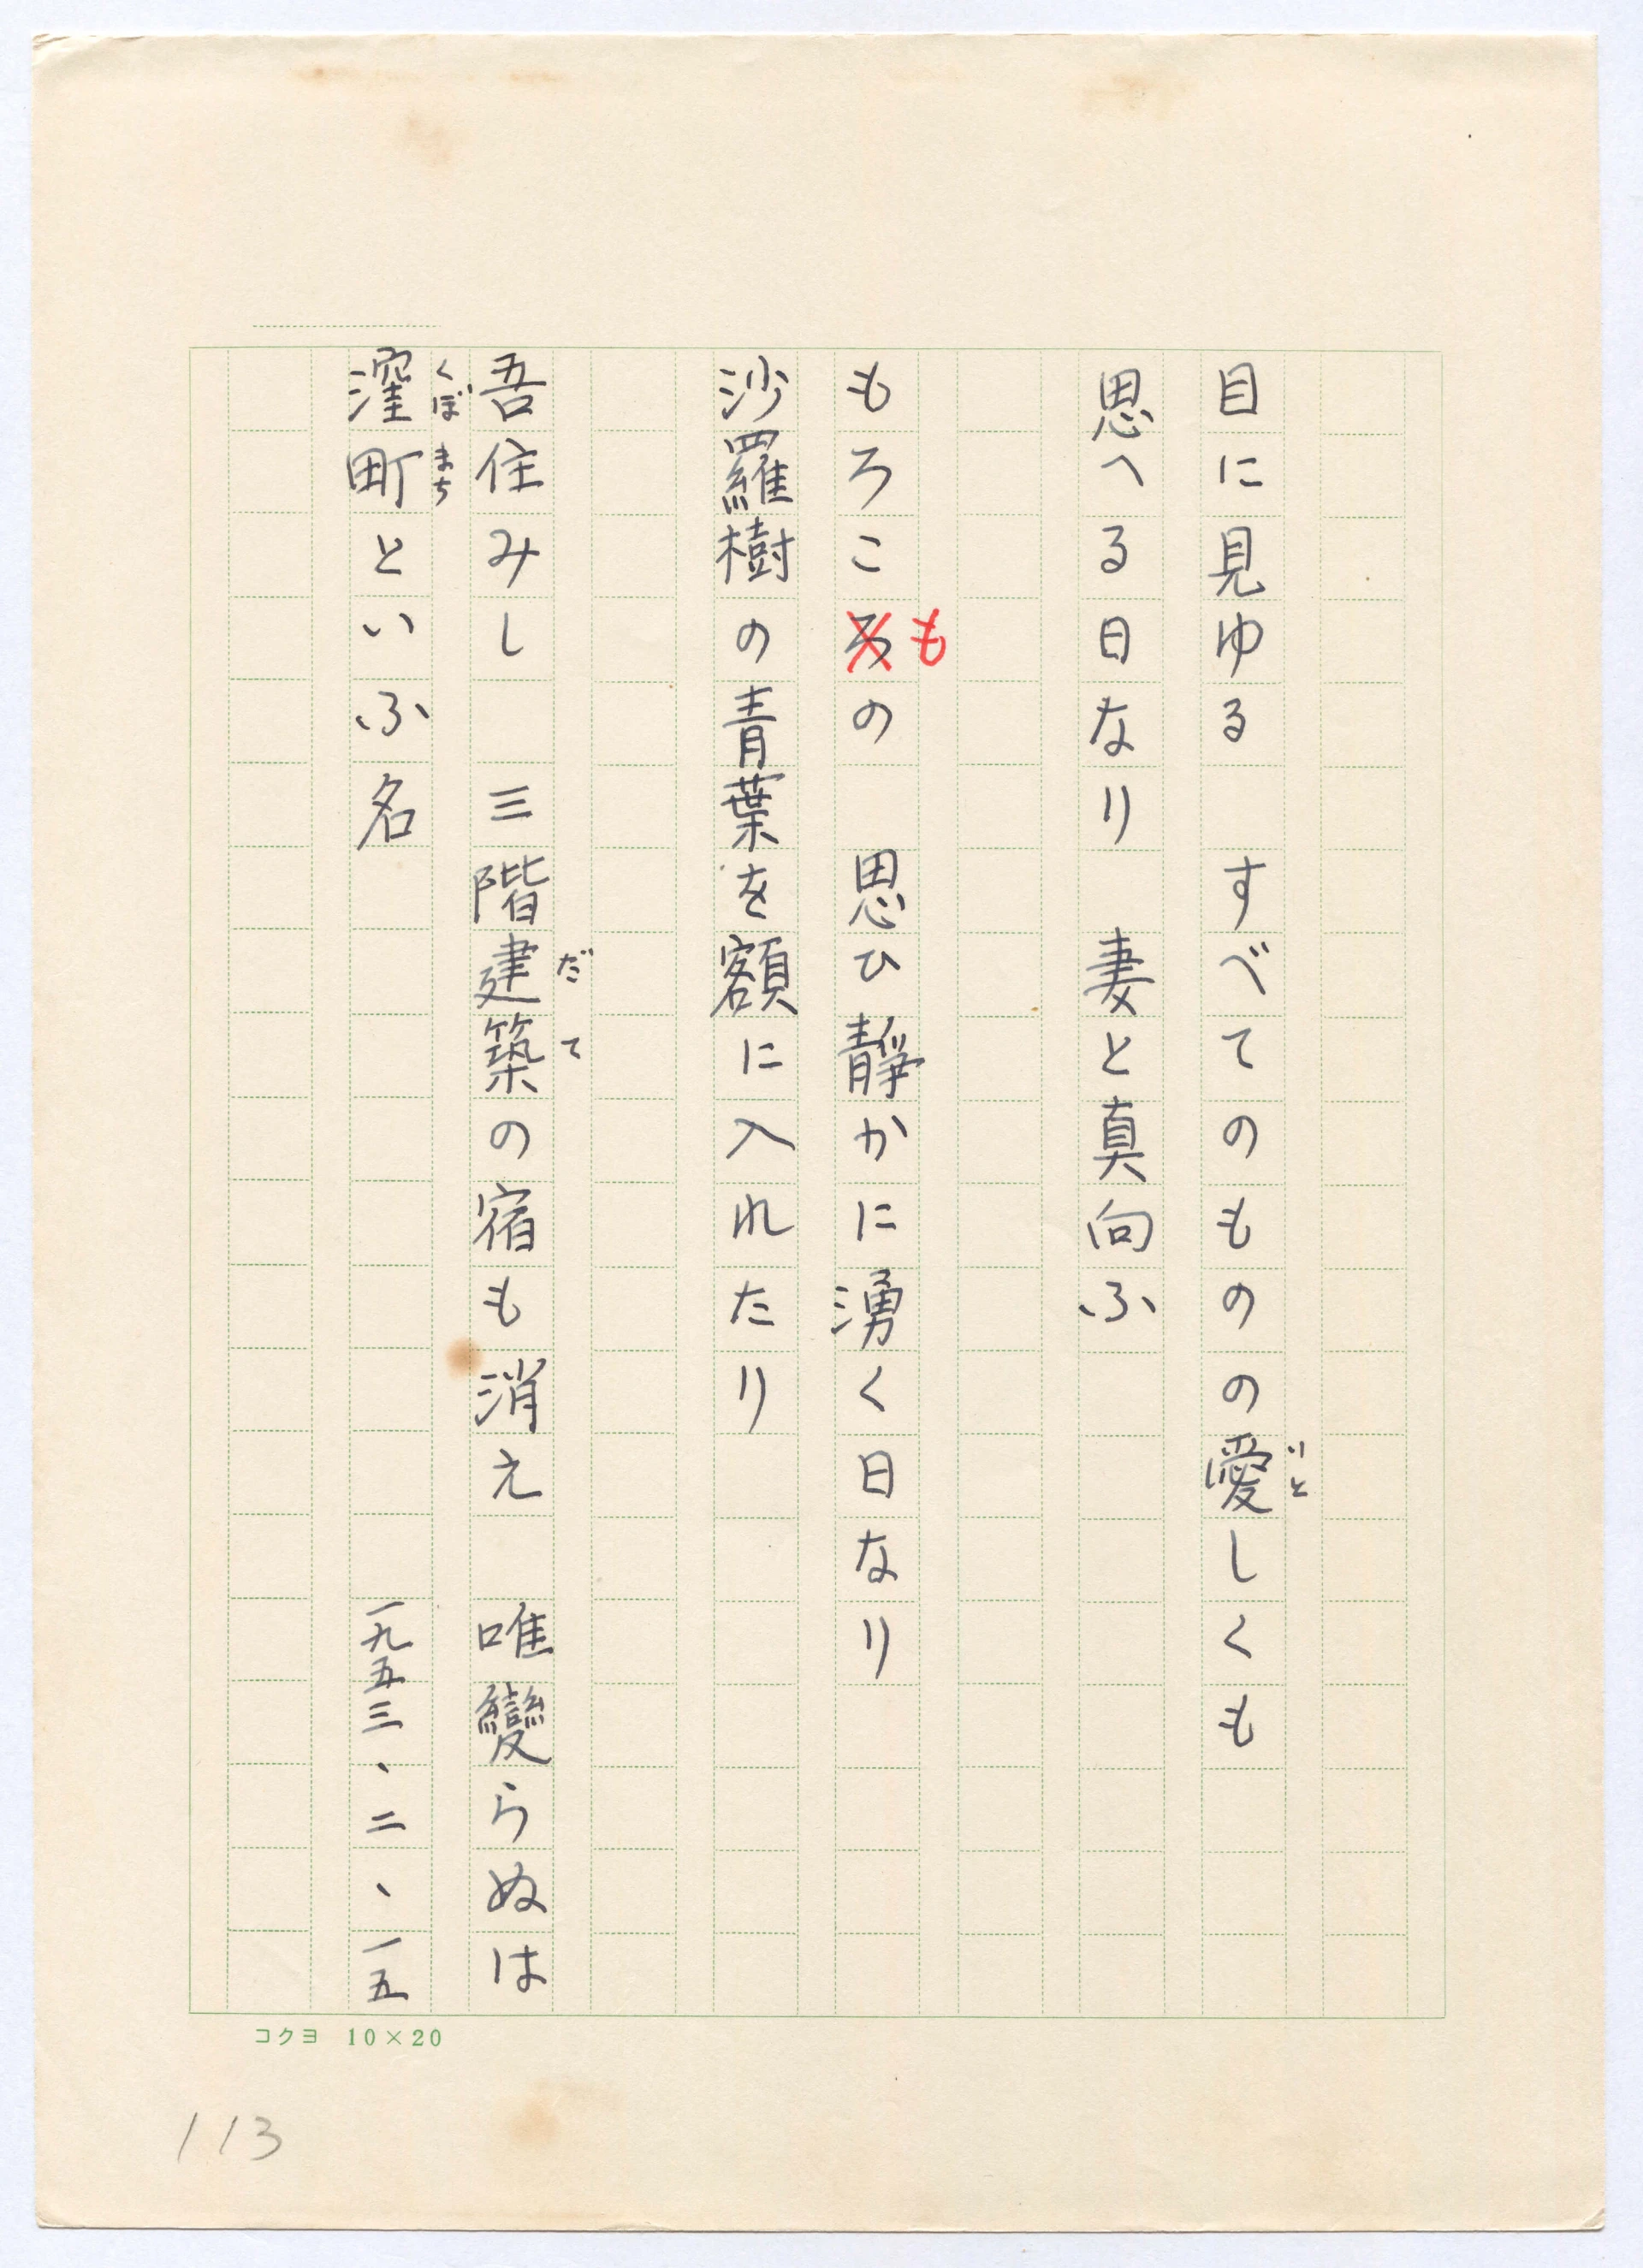 目に見ゆる　すべてのものの愛しくも
いと
思へる日なり　妻と真向ふ
もろころの　思ひ静かに湧く日なり
も
沙羅樹の青葉を額に入れたり
吾住みし　三階建築の宿も消え　唯變らぬは
だて
窪町といふ名　一九五三、二、一五
くぼまち
コクヨ 10×20
113